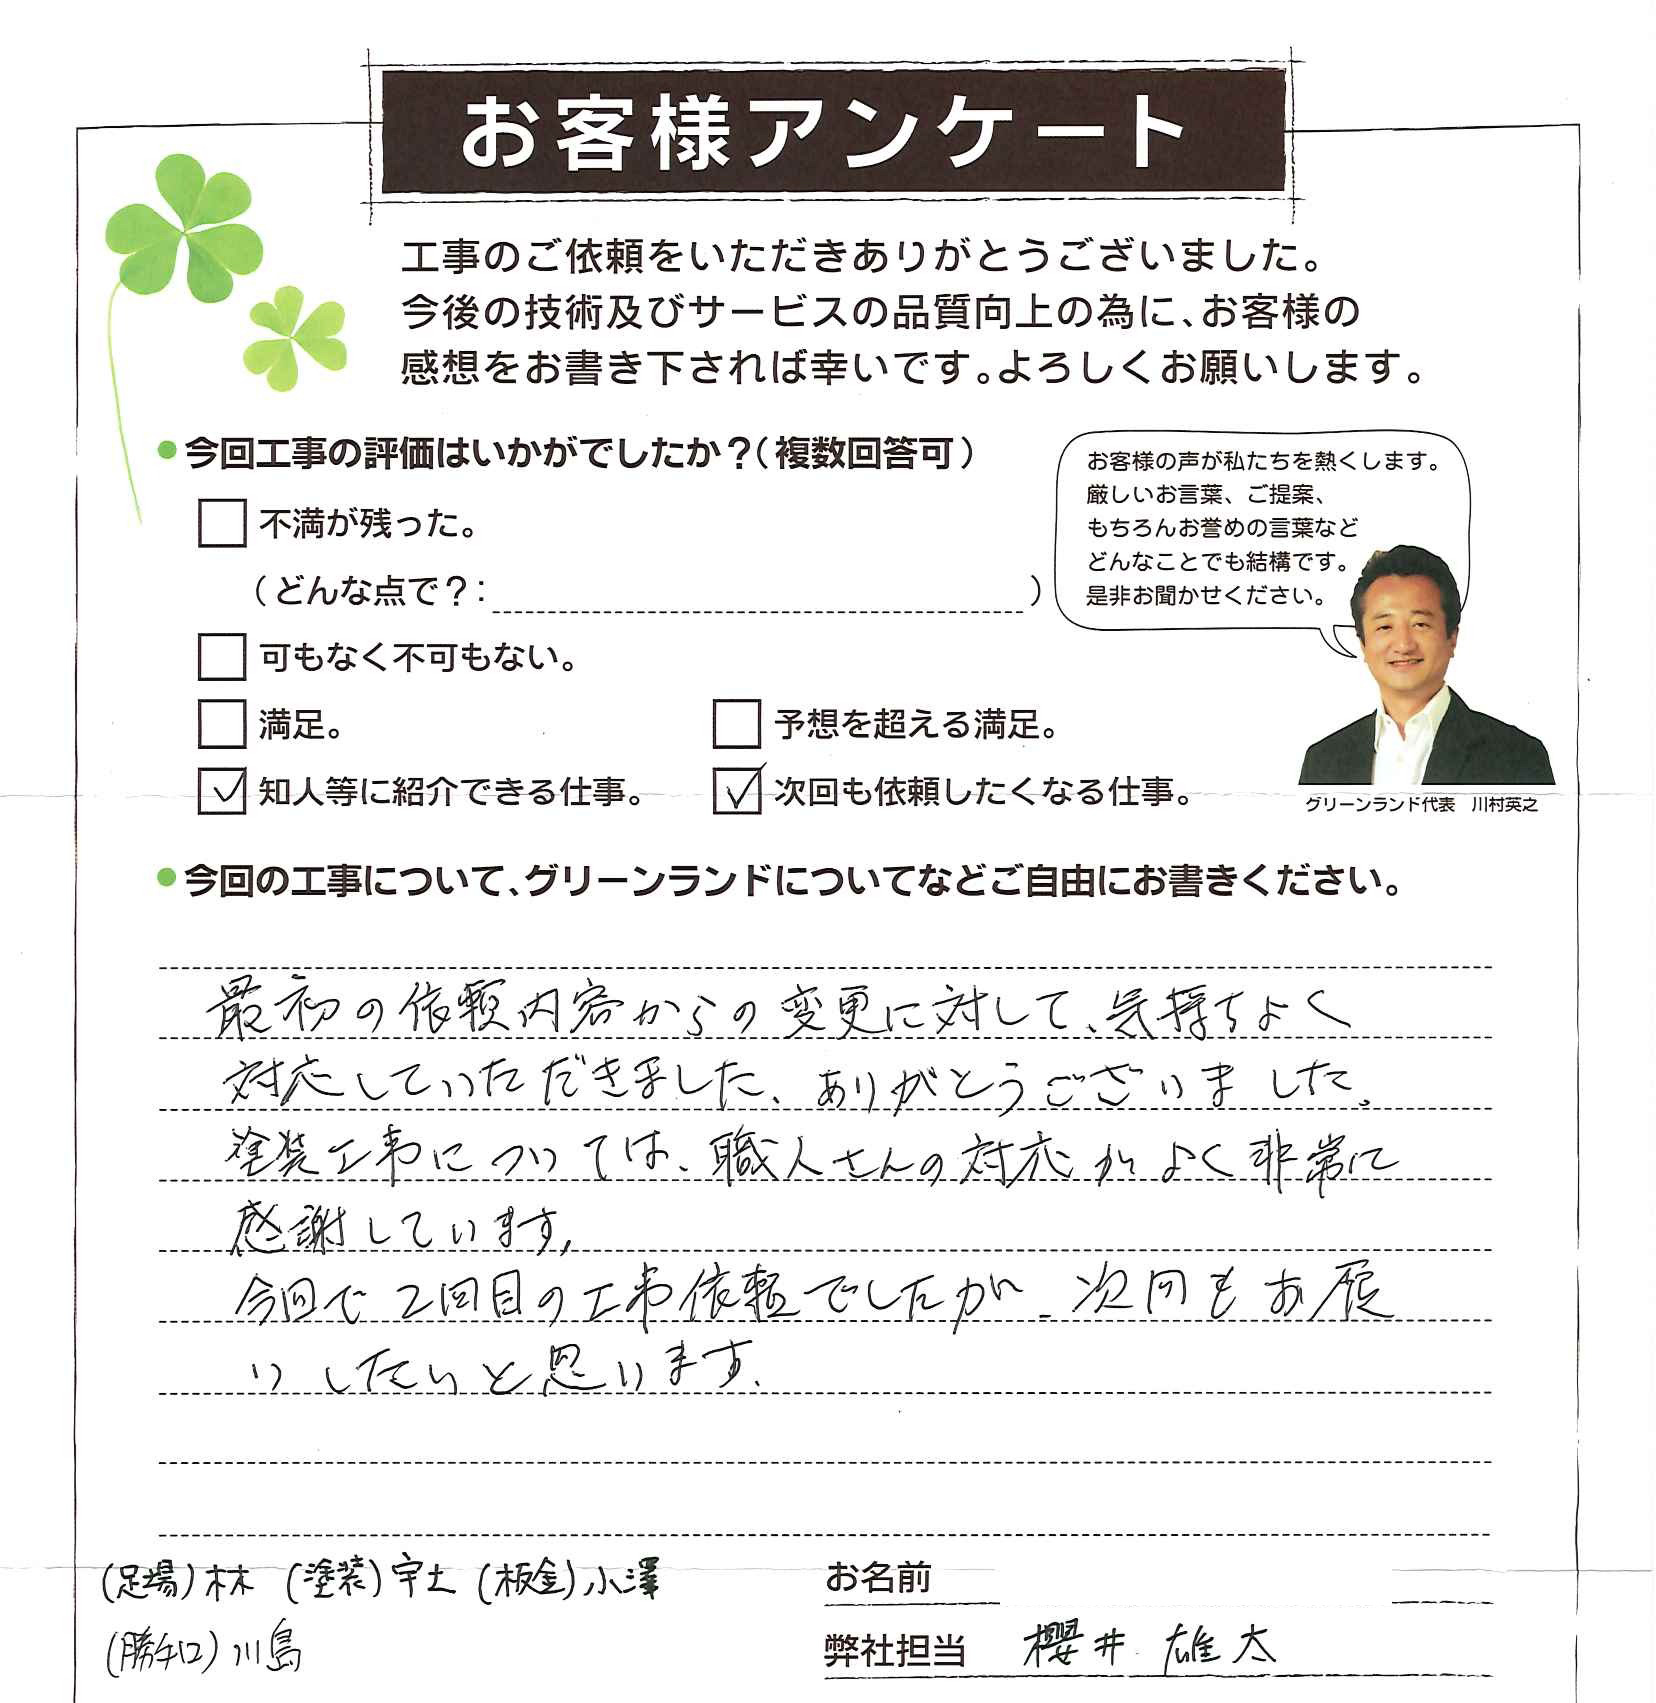 お客様アンケート
工事のご依頼をいただきありがとうございました。
今後の技術及びサービスの品質向上の為に、お客様の
感想をお書き下されば幸いです。よろしくお願いします。
●今回工事の評価はいかがでしたか？（複数回答可）
お客様の声が私たちを熱くします。
厳しいお言葉、ご提案、
もちろんお誉めの言葉など
どんなことでも結構です。
是非お聞かせください。
不満が残った。
（どんな点で？：　）
可もなく不可もない。
満足。
予想を超える満足。
知人等に紹介できる仕事。
次回も依頼したくなる仕事。
グリーンランド代表　川村英之
●今回の工事について、グリーンランドについてなどご自由にお書きください。
最初の依頼内容からの変更に対して、気持ちよく
対応していただきました、ありがとうございました。
塗装工事については、職人さんの対応がよく非常に
感謝しています。
今回で2回目の工事依頼でしたが、次回もお願
いしたいと思います。
(足場)林 (塗装)宇土 (板金)小澤
(勝手口)川島
お名前
弊社担当 櫻井 雄太